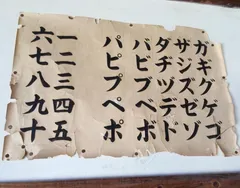 ガギグゲゴ
ザジズゼゾ
ダヂヅデド
バビブベボ
パピプペポ
一二三四五
六七八九十